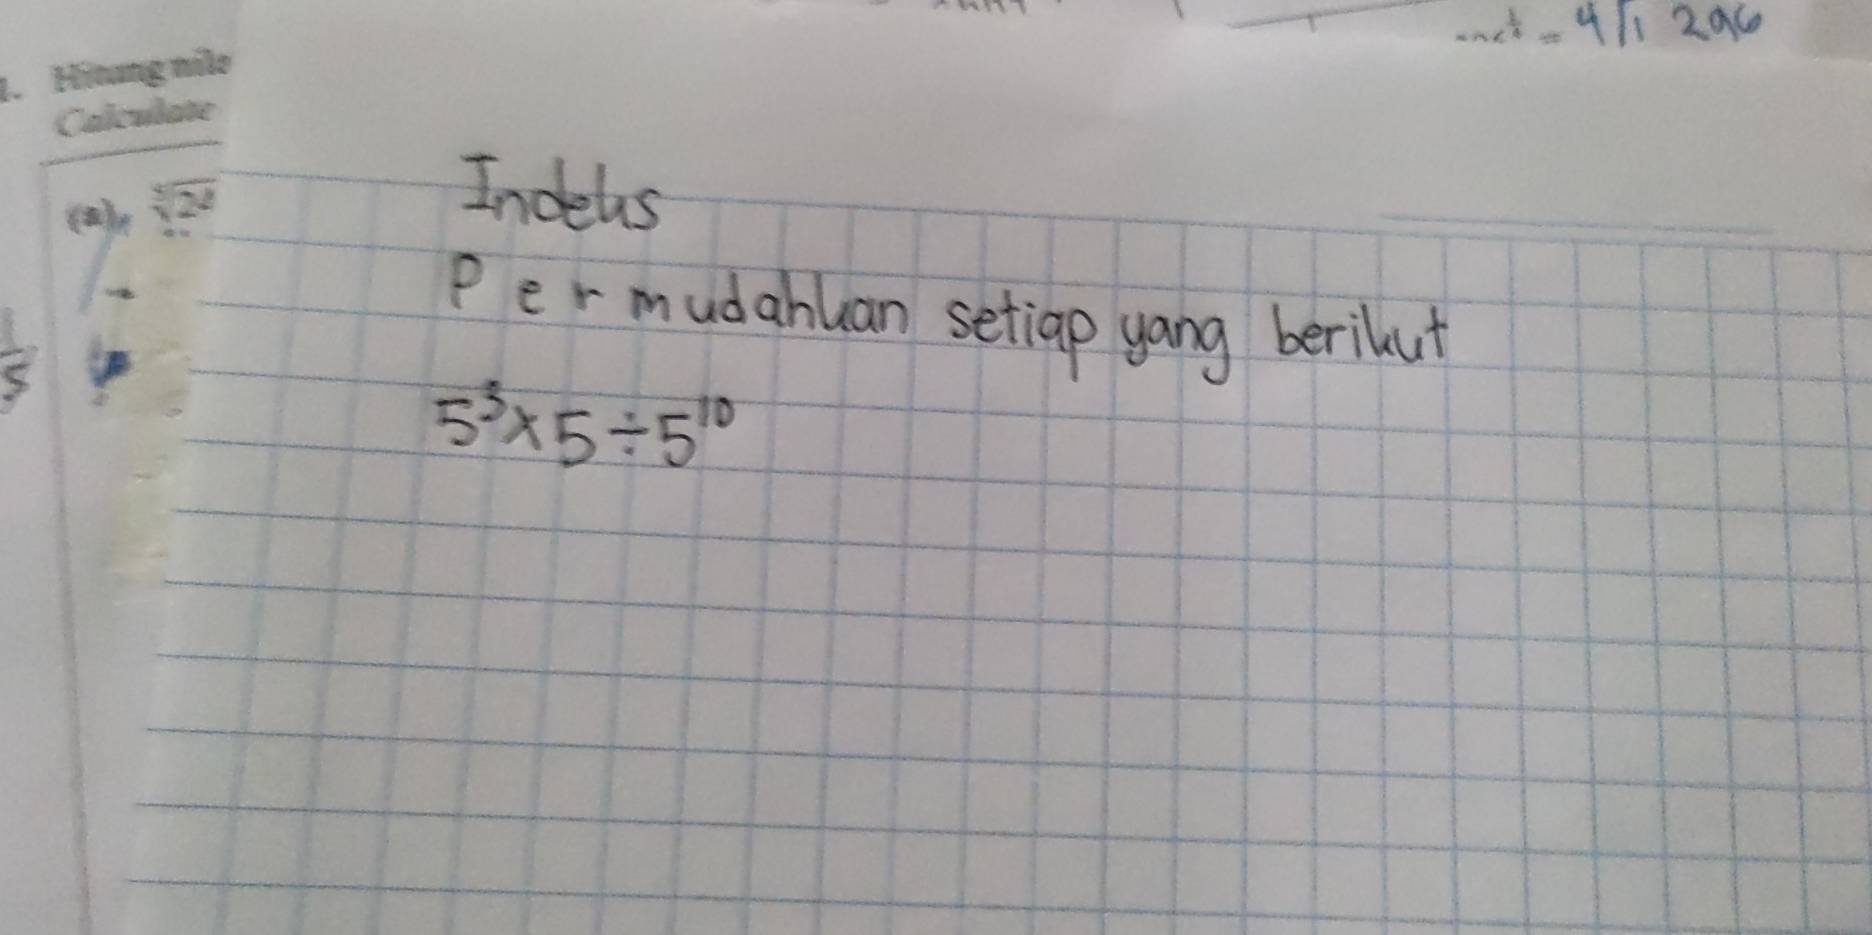 = 4√1 296
1. Hitung nila
Calculate
(a)
Indeks
Permudahkan setiap yang berikut
5³×5÷5¹⁰
1/5